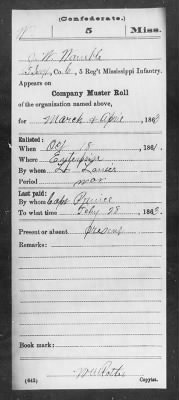 (Confederate.)
5 Miss.
J. W.
Co. 5 Reg't Mississippi Infantry.
Appears on
Company Muster Roll
of the organization named above,
for March & April, 1863
Enlisted:
When Oct 18, 1861.
Where Enterprise
By whom Lt. Lanier
Period war
Last paid:
By whom Capt.
To what time Feby 28, 1863.
Present or absent Present
Remarks:
Book mark:
(642) Copyist.